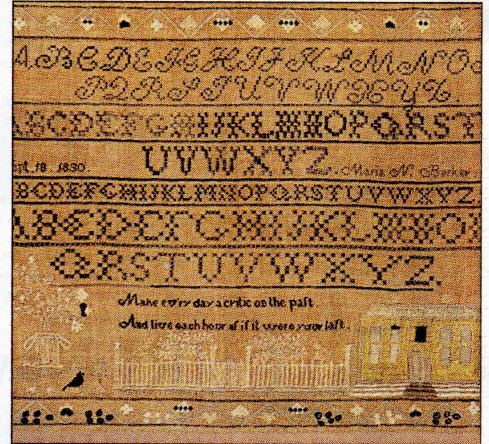 A B C D E F G H I J K L M N O
P Q R S T U V W X Y Z
ABCDEFGHIJKLMNOPQRST
Sept. 18. 1830. UVWXYZ Maria N. Barker
BCDEFGHIJKLMNOPQRSTUVWXYZ
ABCDEFGHIJKLMNO
QRSTUVWXYZ.
Make every day a critic on the past
And live each hour as if it were your last.